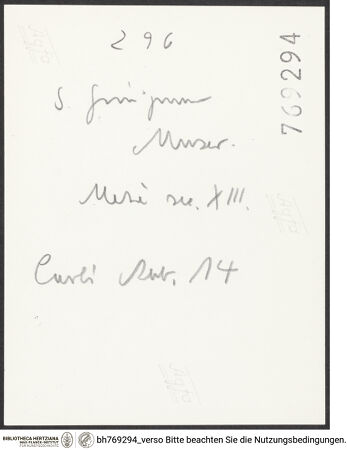 296
769294
S. Gimignano
Museo.
Metà sec. XIII.
Carli Tav. 14
Agfa
Agfa
Agfa
BIBLIOTHECA HERTZIANA
MAX-PLANCK-INSTITUT
FÜR KUNSTGESCHICHTE
bh769294_verso Bitte beachten Sie die Nutzungsbedingungen.